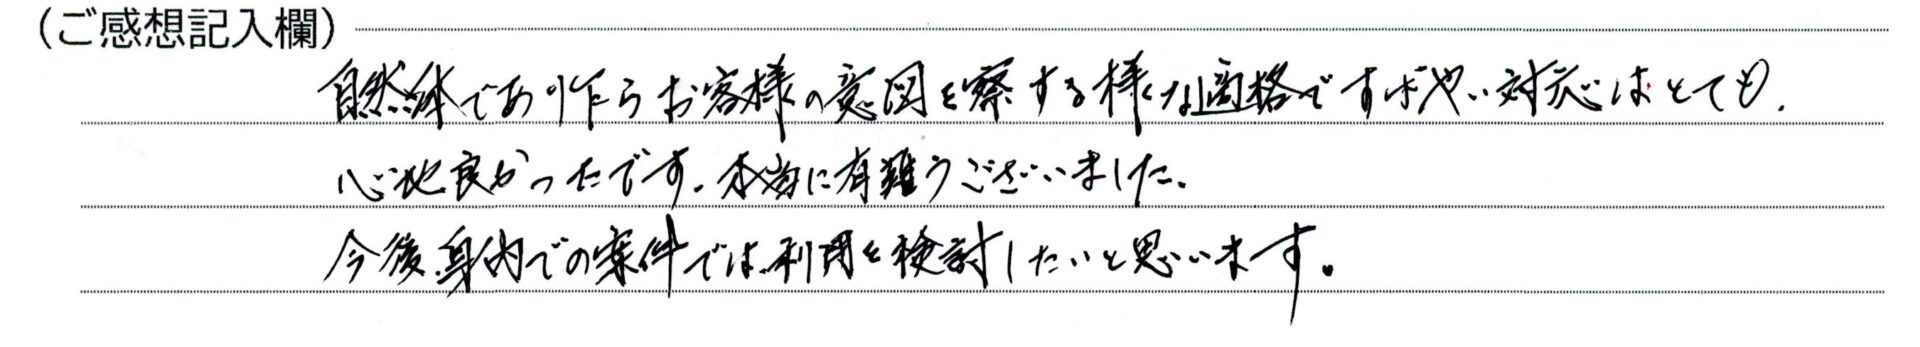 (ご感想記入欄)
自然体であり乍らお客様の意図を察する様な適格ですばやい対応はとても、
心地良かったです。本当に有難うございました。
今後、身内での案件では利用を検討したいと思います。